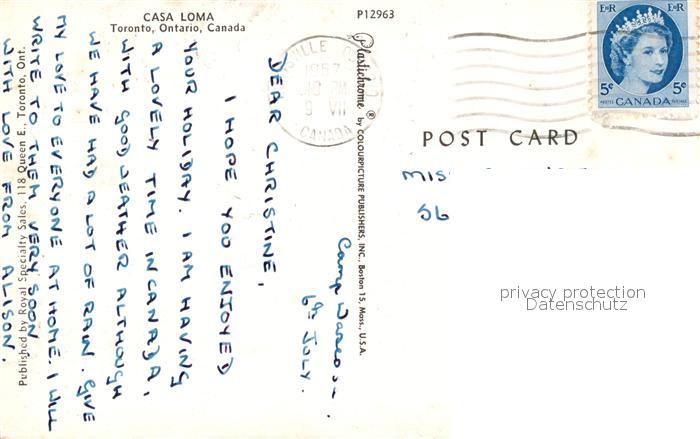 CASA LOMA
Toronto, Ontario, Canada
P12963
Camp
6th JULY.
DEAR CHRISTINE,
I HOPE YOU ENJOYED
YOUR HOLIDAY. I AM HAVING
A LOVELY TIME IN CANADA,
WITH GOOD WEATHER ALTHOUGH
WE HAVE HAD A LOT OF RAIN. GIVE
MY LOVE TO EVERYONE AT HOME. I WILL
WRITE TO THEM VERY SOON
WITH LOVE FROM ALISON.
Published by Royal Specialty Sales, 118 Queen E., Toronto, Ont.
Plastichrome ® by COLOURPICTURE PUBLISHERS, INC., Boston 15, Mass., U.S.A.
VILLE
1957
9 VII
CANADA
E II R E II R
5¢ 5¢
POSTES POSTAGE
CANADA
POST CARD
MIS
56
privacy protection
Datenschutz